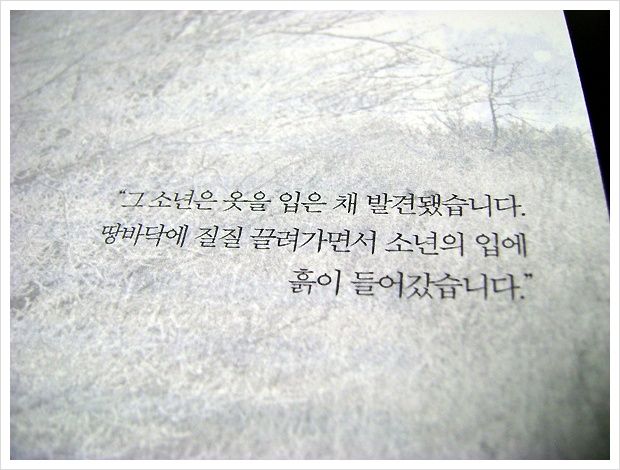 “그 소년은 옷을 입은 채 발견됐습니다.
땅바닥에 질질 끌려가면서 소년의 입에
흙이 들어갔습니다.”